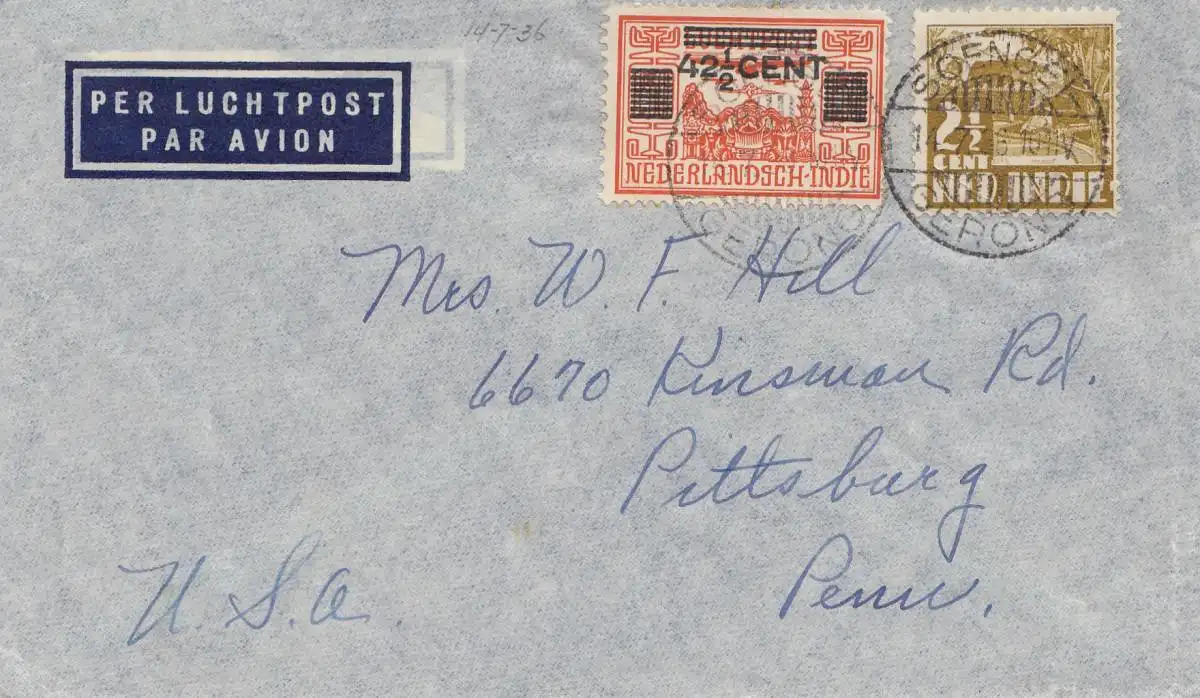 14-7-36
PER LUCHTPOST
PAR AVION
42½ CENT
NEDERLANDSCH-INDIE
2½
CENT
NED. INDIE
Mrs. W. F. Hill
6670 Kinsman Rd.
Pittsburg
Penn.
U. S. A.